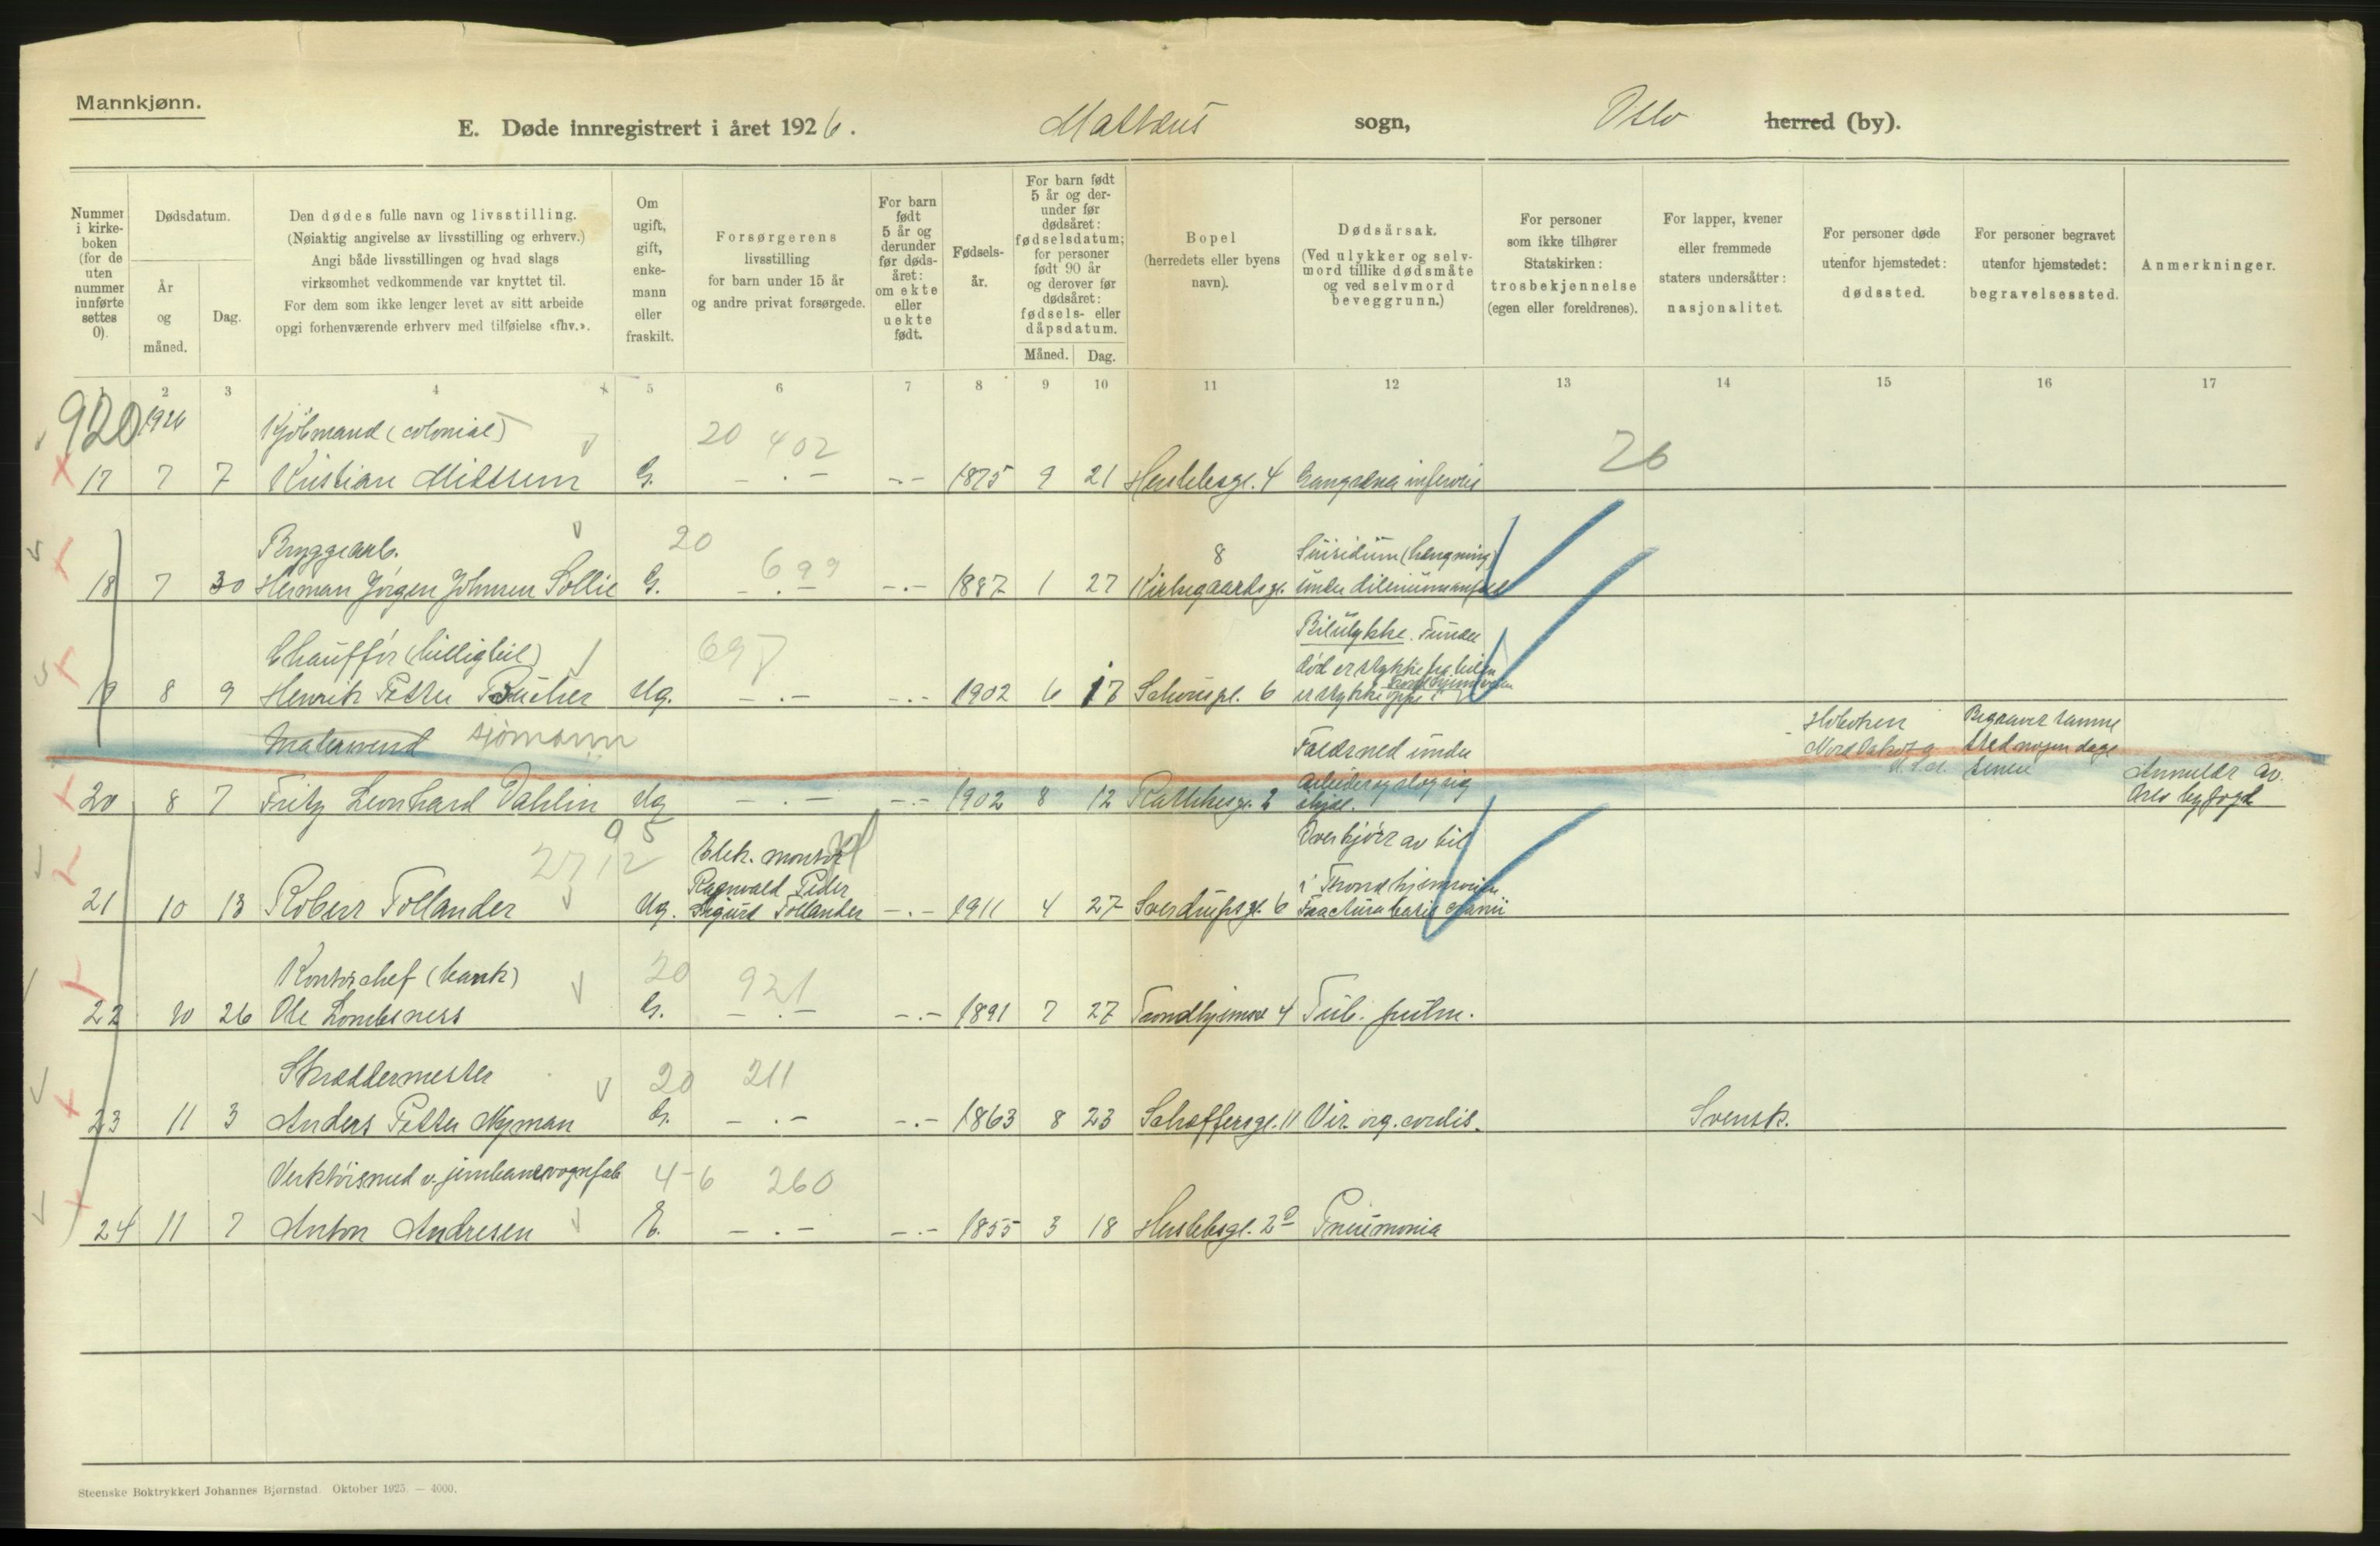 Mannkjønn.
E. Døde innregistrert i året 1926. Mattæus sogn, Oslo herred (by).
Nummer i kirke-boken (for de uten nummer innførte settes 0).
Dødsdatum.
År og måned.
Dag.
Den dødes fulle navn og livsstilling.
(Nøiaktig angivelse av livsstilling og erhverv.)
Angi både livsstillingen og hvad slags
virksomhet vedkommende var knyttet til.
For dem som ikke lenger levet av sitt arbeide
opgi forhenværende erhverv med tilføielse «fhv.».
Om ugift, gift, enke-mann eller fraskilt.
Forsørgerens
livsstilling
for barn under 15 år
og andre privat forsørgede.
For barn født 5 år og derunder før døds-året: om ekte eller uekte født.
Fødsels-år.
For barn født 5 år og der-under før dødsåret: fødselsdatum; for personer født 90 år og derover før dødsåret: fødsels- eller dåpsdatum.
Måned. Dag.
Bopel
(herredets eller byens
navn).
Dødsårsak.
(Ved ulykker og selv-
mord tillike dødsmåte
og ved selvmord
beveggrunn.)
For personer
som ikke tilhører
Statskirken:
trosbekjennelse
(egen eller foreldrenes).
For lapper, kvener
eller fremmede
staters undersåtter:
nasjonalitet.
For personer døde
utenfor hjemstedet:
dødssted.
For personer begravet
utenfor hjemstedet:
begravelsessted.
Anmerkninger.
1 2 3 4 5 6 7 8 9 10 11 12 13 14 15 16 17
920 1926 Kjöbmand (colonial) 20 402 26
17 7 7 Kristian G. - . - - . - 1875 9 21 Herslebsgt. 4 Gangræna
Bryggearb. 20 699 8 Suisidium (hengning)
18 7 30 Herman Jörgen Johnsen Sollie G. - . - - . - 1887 1 27 Kirkegaardsgt. under
Chaufför (lilligbil) 697 Bilulykke. Funde
død et stykke fra bilen
19 8 9 Henrik Petter Bucher Ug. - . - - . - 1902 6 17 Schousgt. 6 et stykke oppe i Trondhjemsveien
Matrosmend sjömann Faldt ned under Hoboken Begravet samme
Nord Dakota sted nogen dage
U.S.A. senere
20 8 7 Fritz Leonhard Dahlin Ug - . - - . - 1902 8 12 Rathkesgt. 2 arbeide og slog sig Anmeldt av
ihjel. Oslo byfogd
95
2712 Elek. montör Overkjört av bil
Ragnvald Peder i Trondhjemsveien
21 10 13 Robert Tollander Ug. Sigurd Tollander - . - 1911 4 27 Sverdrupsgt. 6 Fractura basis cranii
Kontorchef (bank) 20 921
22 10 26 Ole G. - . - - . - 1891 7 27 Trondhjemsv 4 Tub. pulm.
Skræddermester 20 211
23 11 3 Anders Petter Nyman G. - . - - . - 1863 8 23 Schæffersgt. 11 Vit. org. cordis. Svensk.
Verktöismed v. jernbanevognfab 4-6 260
24 11 7 Anton Andresen E. - . - - . - 1855 3 18 Herslebsgt. 2 Pneumonia
Steenske Boktrykkeri Johannes Bjørnstad. Oktober 1925. — 4000.